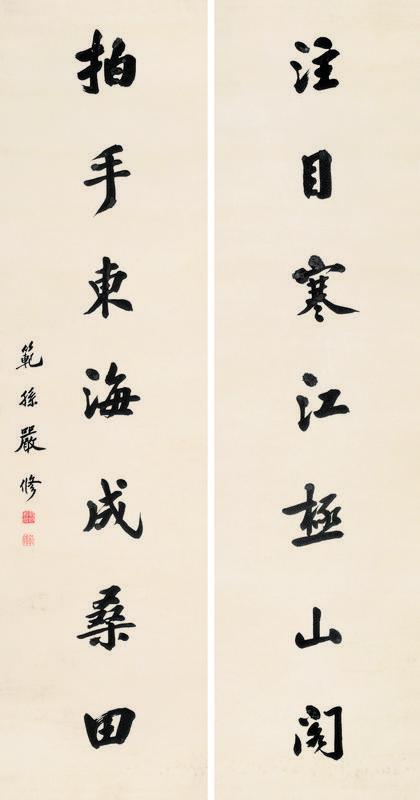 注目寒江極山閣
拍手東海成桑田
範孫嚴修